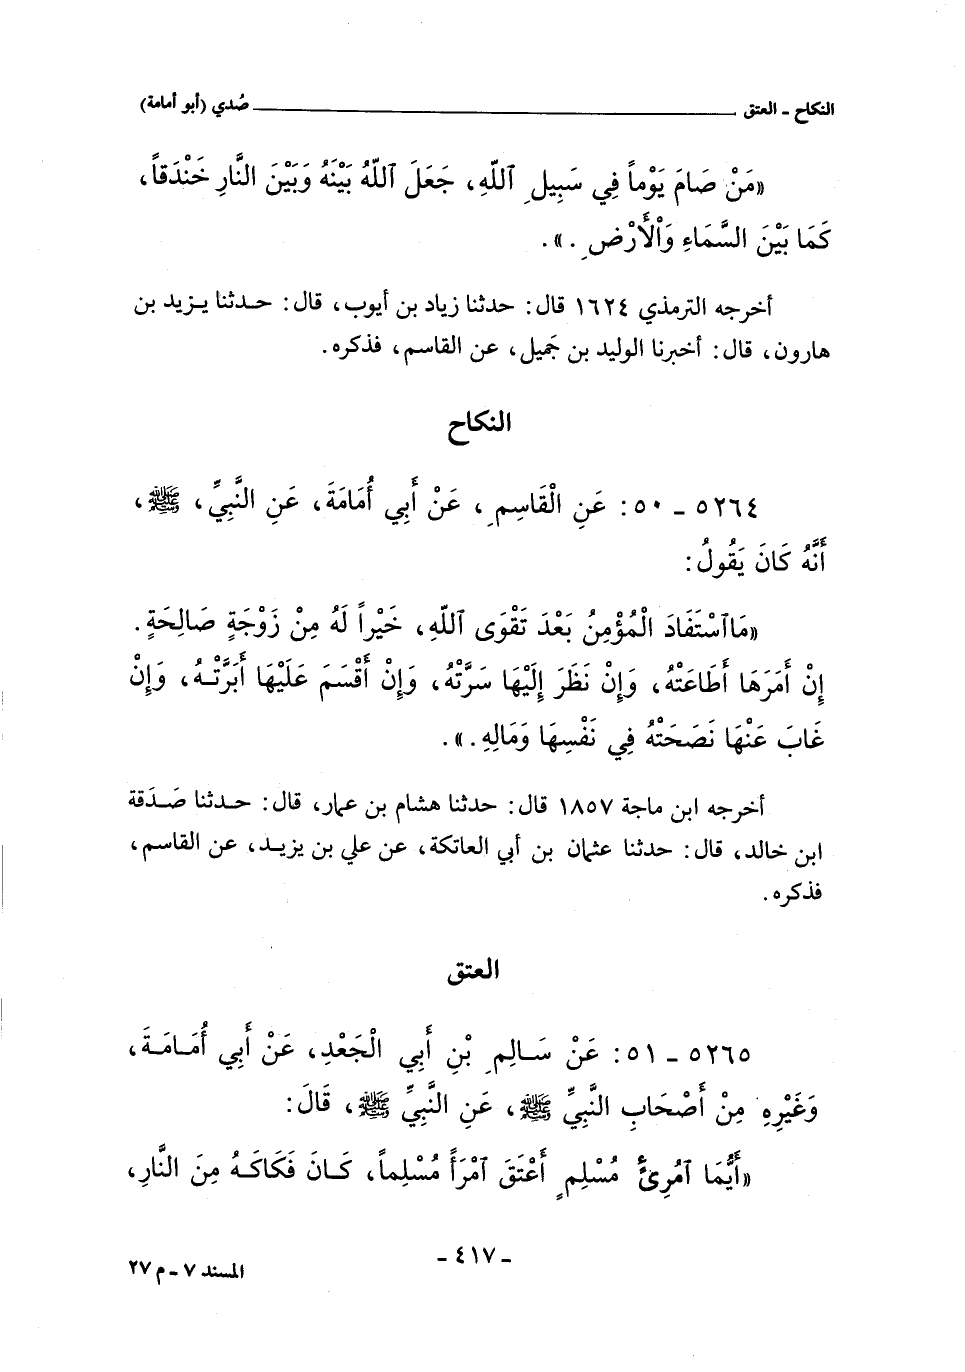 النكاح - العتق ــــــــــــــــــــــــــــــــــ صُدي (أبو أمامة)
«مَنْ صَامَ يَوْماً فِي سَبِيلِ ٱللّهِ، جَعَلَ ٱللّهُ بَيْنَهُ وَبَيْنَ النَّارِ خَنْدَقاً،
كَمَا بَيْنَ السَّمَاءِ وَاْلأَرْضِ.».
أخرجه الترمذي ١٦٢٤ قال: حدثنا زياد بن أيوب، قال: حدثنا يزيد بن
هارون، قال: أخبرنا الوليد بن جَميل، عن القاسم، فذكره.
النكاح
٥٢٦٤ - ٥٠: عَنِ الْقَاسِمِ، عَنْ أَبِي أُمَامَةَ، عَنِ النَّبِيِّ، ﷺ،
أَنَّهُ كَانَ يَقُولُ:
«مَاآسْتَفَادَ الْمُؤْمِنُ بَعْدَ تَقْوَى ٱللّهِ، خَيْراً لَهُ مِنْ زَوْجَةٍ صَالِحَةٍ.
إِنْ أَمَرَهَا أَطَاعَتْهُ، وَإِنْ نَظَرَ إِلَيْهَا سَرَّتْهُ، وَإِنْ أَقْسَمَ عَلَيْهَا أَبَرَّتْهُ، وَإِنْ
غَابَ عَنْهَا نَصَحَتْهُ فِي نَفْسِهَا وَمَالِهِ.».
أخرجه ابن ماجة ١٨٥٧ قال: حدثنا هشام بن عمار، قال: حدثنا صَدَقة
ابن خالد، قال: حدثنا عثمان بن أبي العاتكة، عن علي بن يزيد، عن القاسم،
فذكره.
العتق
٥٢٦٥ - ٥١: عَنْ سَالِمِ بْنِ أَبِي الْجَعْدِ، عَنْ أَبِي أُمَامَةَ،
وَغَيْرِهِ مِنْ أَصْحَابِ النَّبِيِّ ﷺ، عَنِ النَّبِيِّ ﷺ، قَالَ:
«أَيُّمَا ٱمْرِئٍ مُسْلِمٍ أَعْتَقَ ٱمْرَأً مُسْلِماً، كَانَ فَكَاكَهُ مِنَ النَّارِ،
- ٤١٧ -
المسند ٧ - م ٢٧